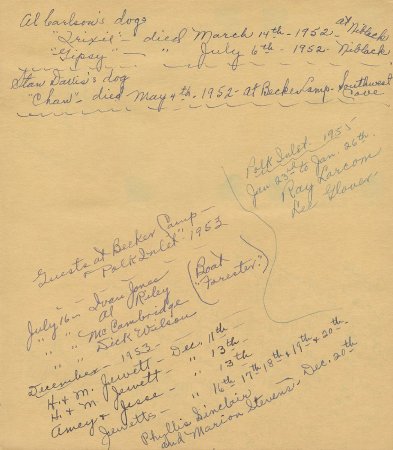 Al Carlson's dogs
"Trixie" - died March 14th - 1952 at Niblack
"Gipsy" - " July 6th - 1952 - Niblack
Stan Davis's dog
"Chaw" - died May 4th - 1952 - at Becker Camp - Southwest Cove
Polk Inlet - 1955
Jan 23rd to Jan 26th.
Ray Larcom
Lee Glover
Guests at Becker Camp -
+ Polk Inlet - 1953
July 16 - Ivan Jones
" " Al Riley
" " McCambridge
" " Dick Wilson
(Boat "Forester")
December - 1953 -
H. & M. Jewett - Dec. 11th
H. & M. Jewett - " 13th
Amey & Jesse - " 13th
Jewetts - " 16th 17th 18th & 19th & 20th
Phyllis Sinclair
and Marion Stevens - Dec. 20th